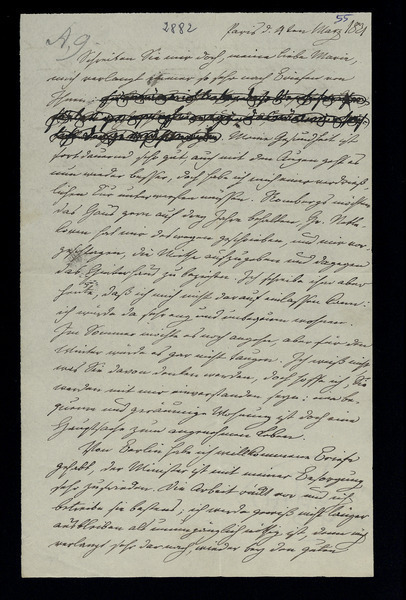 2882
55
A, 9
Paris d. 4ten März 1821
Schreiben Sie mir doch, meine liebe Marie,
mich verlangt immer so sehr nach Briefen von
Ihnen;
Meine Gesundheit ist
fortdauernd sehr gut, auch mit den Augen geht es
nun wieder besser, doch habe ich mich einer verdrieß-
lichen Cur unterwerfen müssen. möchten
das Haus gern auf drey Jahre behalten, Hr.
hat mir deswegen geschrieben, und mir vor-
geschlagen, die aufzugeben und dagegen
das zu beziehen. Ich schreibe ihm aber
heute, daß ich mich nicht darauf einlassen kann:
ich würde da sehr eng und unbequem wohnen.
Im Sommer möchte es noch angehen, aber für den
Winter würde es gar nicht taugen. Ich weiß nicht
was Sie davon denken werden, doch hoffe ich, Sie
werden mit mir einverstanden seyn: eine be-
queme und geräumige Wohnung ist doch eine
Hauptsache zum angenehmen Leben.
Von Berlin habe ich willkommene Briefe
gehabt, der Minister ist mit meiner Besorgung
sehr zufrieden. Die Arbeit rückt vor und ich
betreibe sie bestens; ich werde gewiß nicht länger
ausbleiben als unumgänglich nöthig ist, denn mich
verlangt sehr darnach, wieder bey den guten